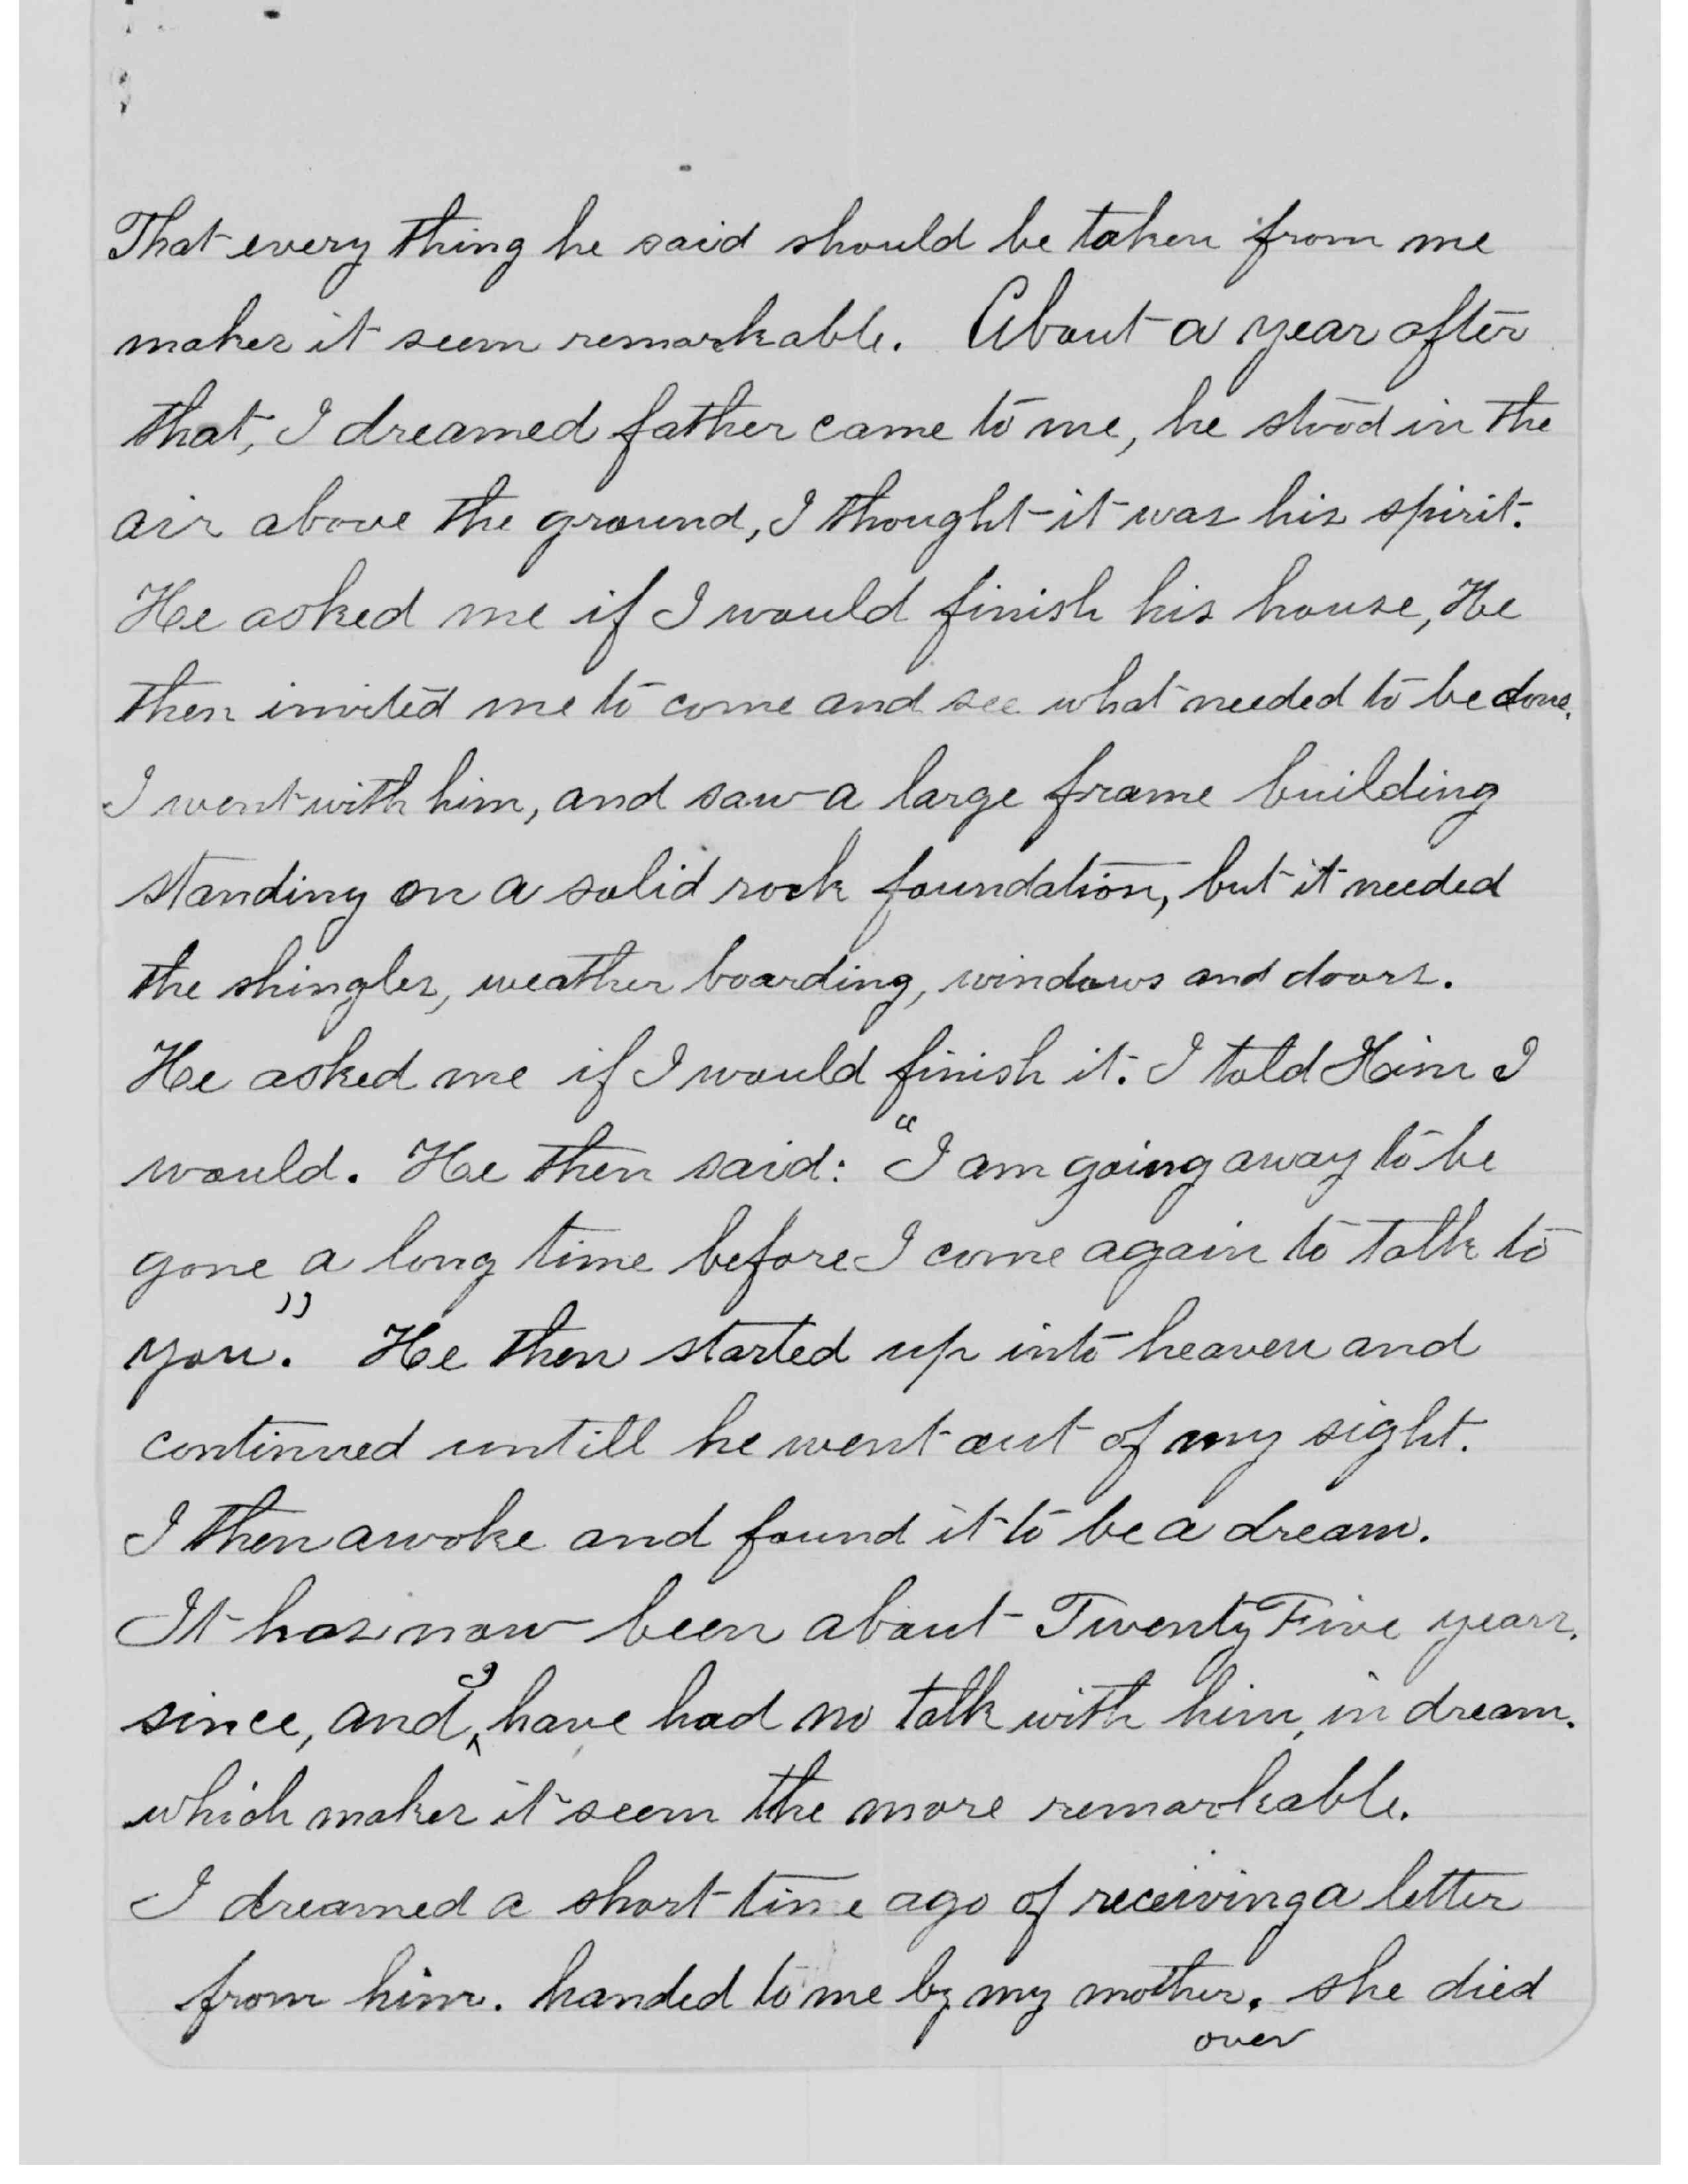 That every thing he said should be taken from me
makes it seem remarkable. About a year after
that, I dreamed father came to me, he stood in the
air above the ground, I thought it was his spirit.
He asked me if I would finish his house, He
then invited me to come and see what needed to be done.
I went with him, and saw a large frame building
standing on a solid rock foundation, but it needed
the shingles, weather boarding, windows and doors.
He asked me if I would finish it. I told Him I
would. He then said: "I am going away to be
gone a long time before I come again to talk to
you." He then started up into heaven and
continued untill he went out of my sight.
I then awoke and found it to be a dream.
It has now been about Twenty Five years.
since, and I have had no talk with him, in dream.
which makes it seem the more remarkable.
I dreamed a short time ago of receiving a letter
from him. handed to me by my mother. she died
over